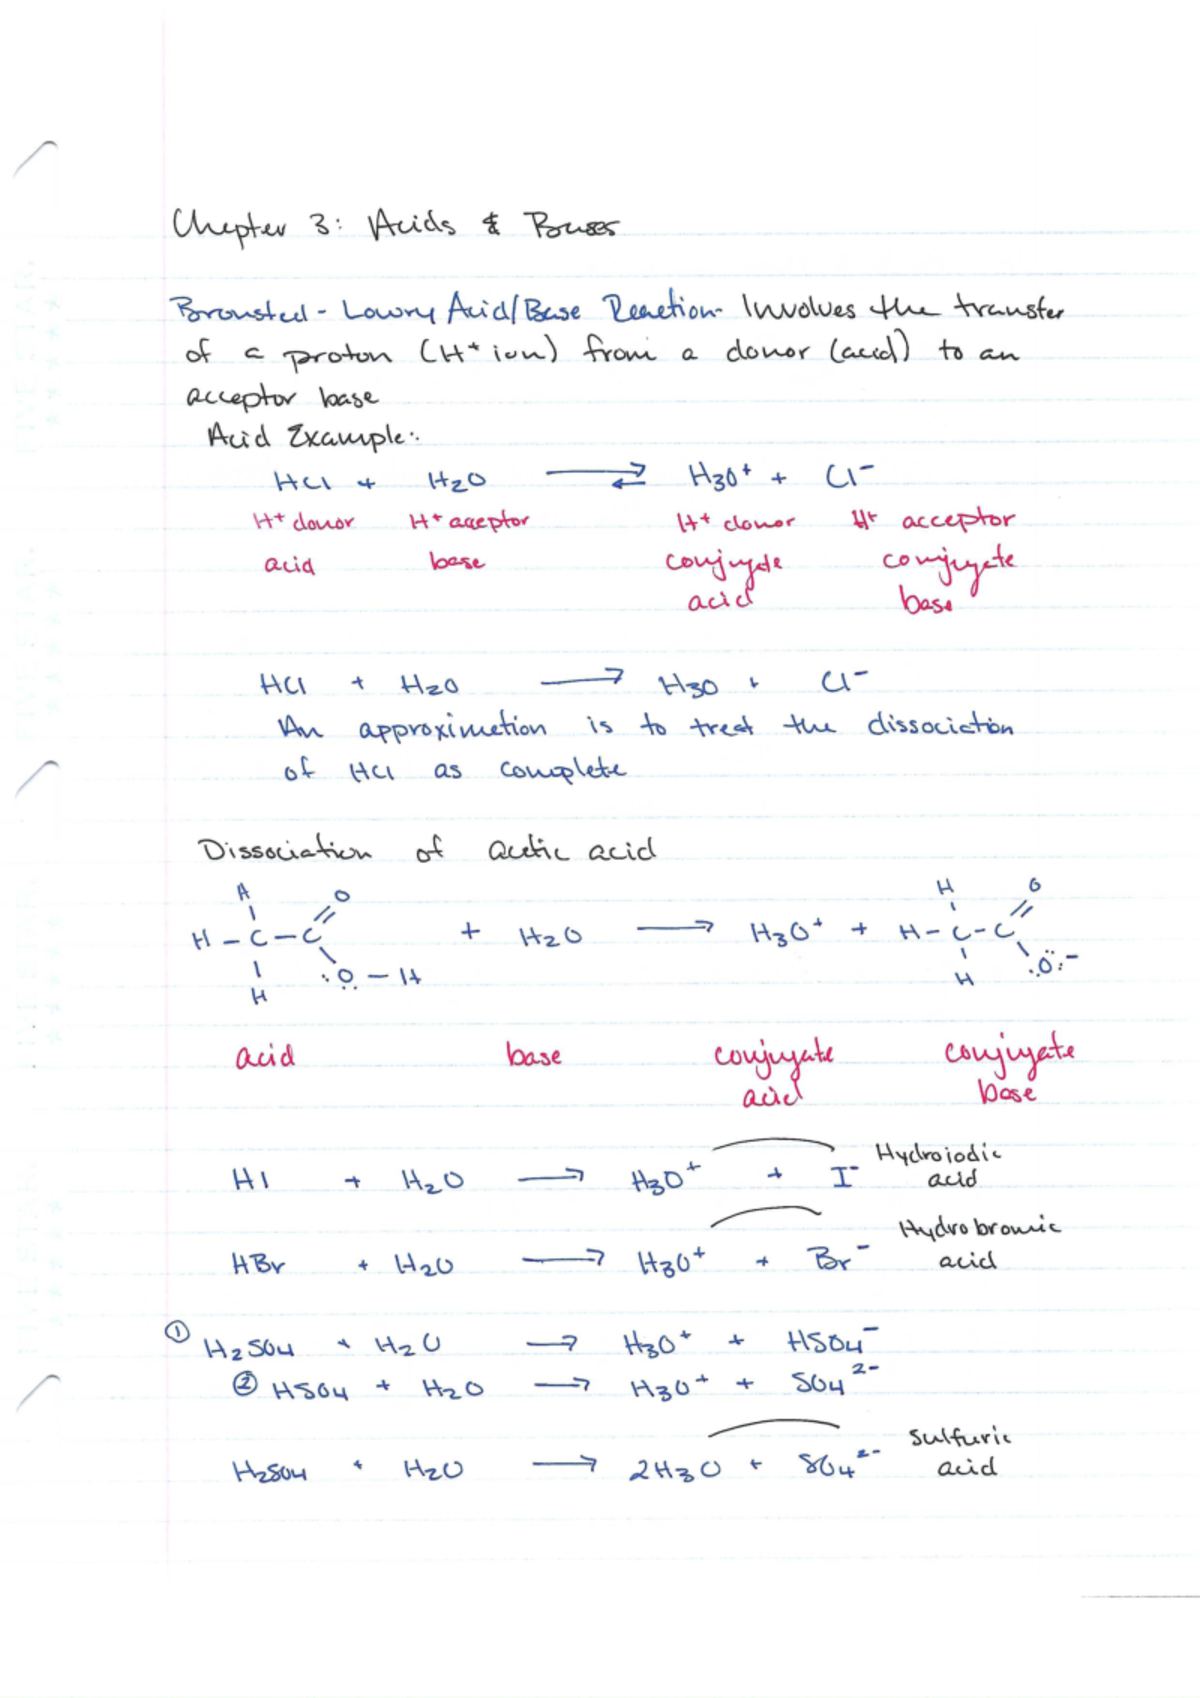 Chapter 3: Acids & Bases
Bronsted-Lowry Acid/Base Reaction- Involves the transfer
of a proton (H+ ion) from a donor (acid) to an
acceptor base
Acid Example:
HCl + H2O ⇌ H3O+ + Cl-
H+ donor H+ acceptor H+ donor H+ acceptor
acid base conjugate conjugate
acid base
HCl + H2O → H3O + Cl-
An approximation is to treat the dissociation
of HCl as complete
Dissociation of acetic acid
H O H O
H-C-C + H2O → H3O+ + H-C-C
H :O-H H :O:-
acid base conjugate conjugate
acid base
HI + H2O → H3O+ + I- Hydroiodic
acid
HBr + H2O → H3O+ + Br- Hydrobromic
acid
① H2SO4 + H2O → H3O+ + HSO4-
② HSO4 + H2O → H3O+ + SO4 2-
H2SO4 + H2O → 2H3O + SO4 2- Sulfuric
acid